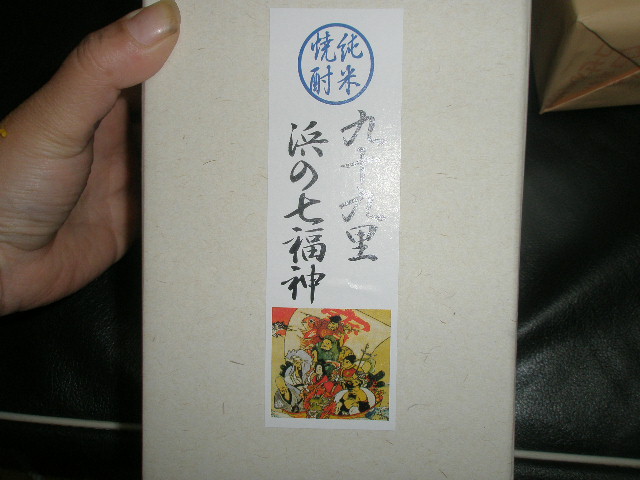 純米
焼酎
九十九里
浜の七福神